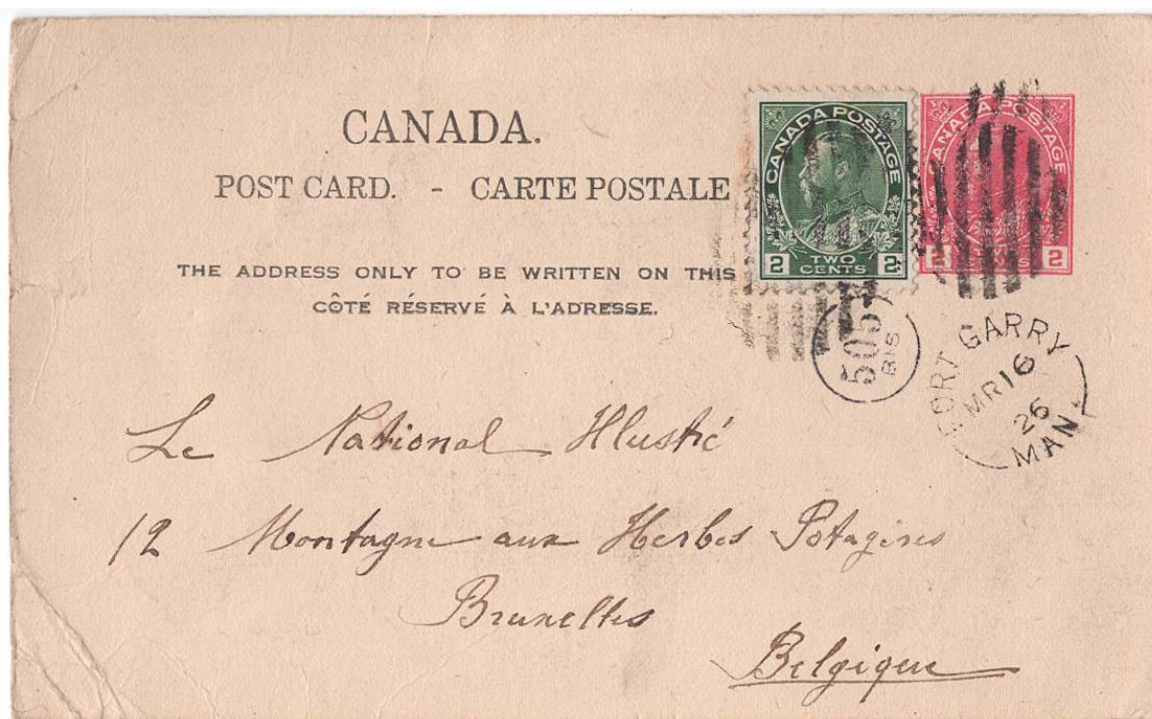 CANADA.
POST CARD. - CARTE POSTALE
THE ADDRESS ONLY TO BE WRITTEN ON THIS
CÔTÉ RÉSERVÉ À L'ADRESSE.
CANADA POSTAGE
2 TWO CENTS 2
CANADA POSTAGE
2 CENTS 2
505
BIS
FORT GARRY
MR 16
26
MAN.
Le National Illustré
12 Montagne aux Herbes Potagères
Bruxelles
Belgique